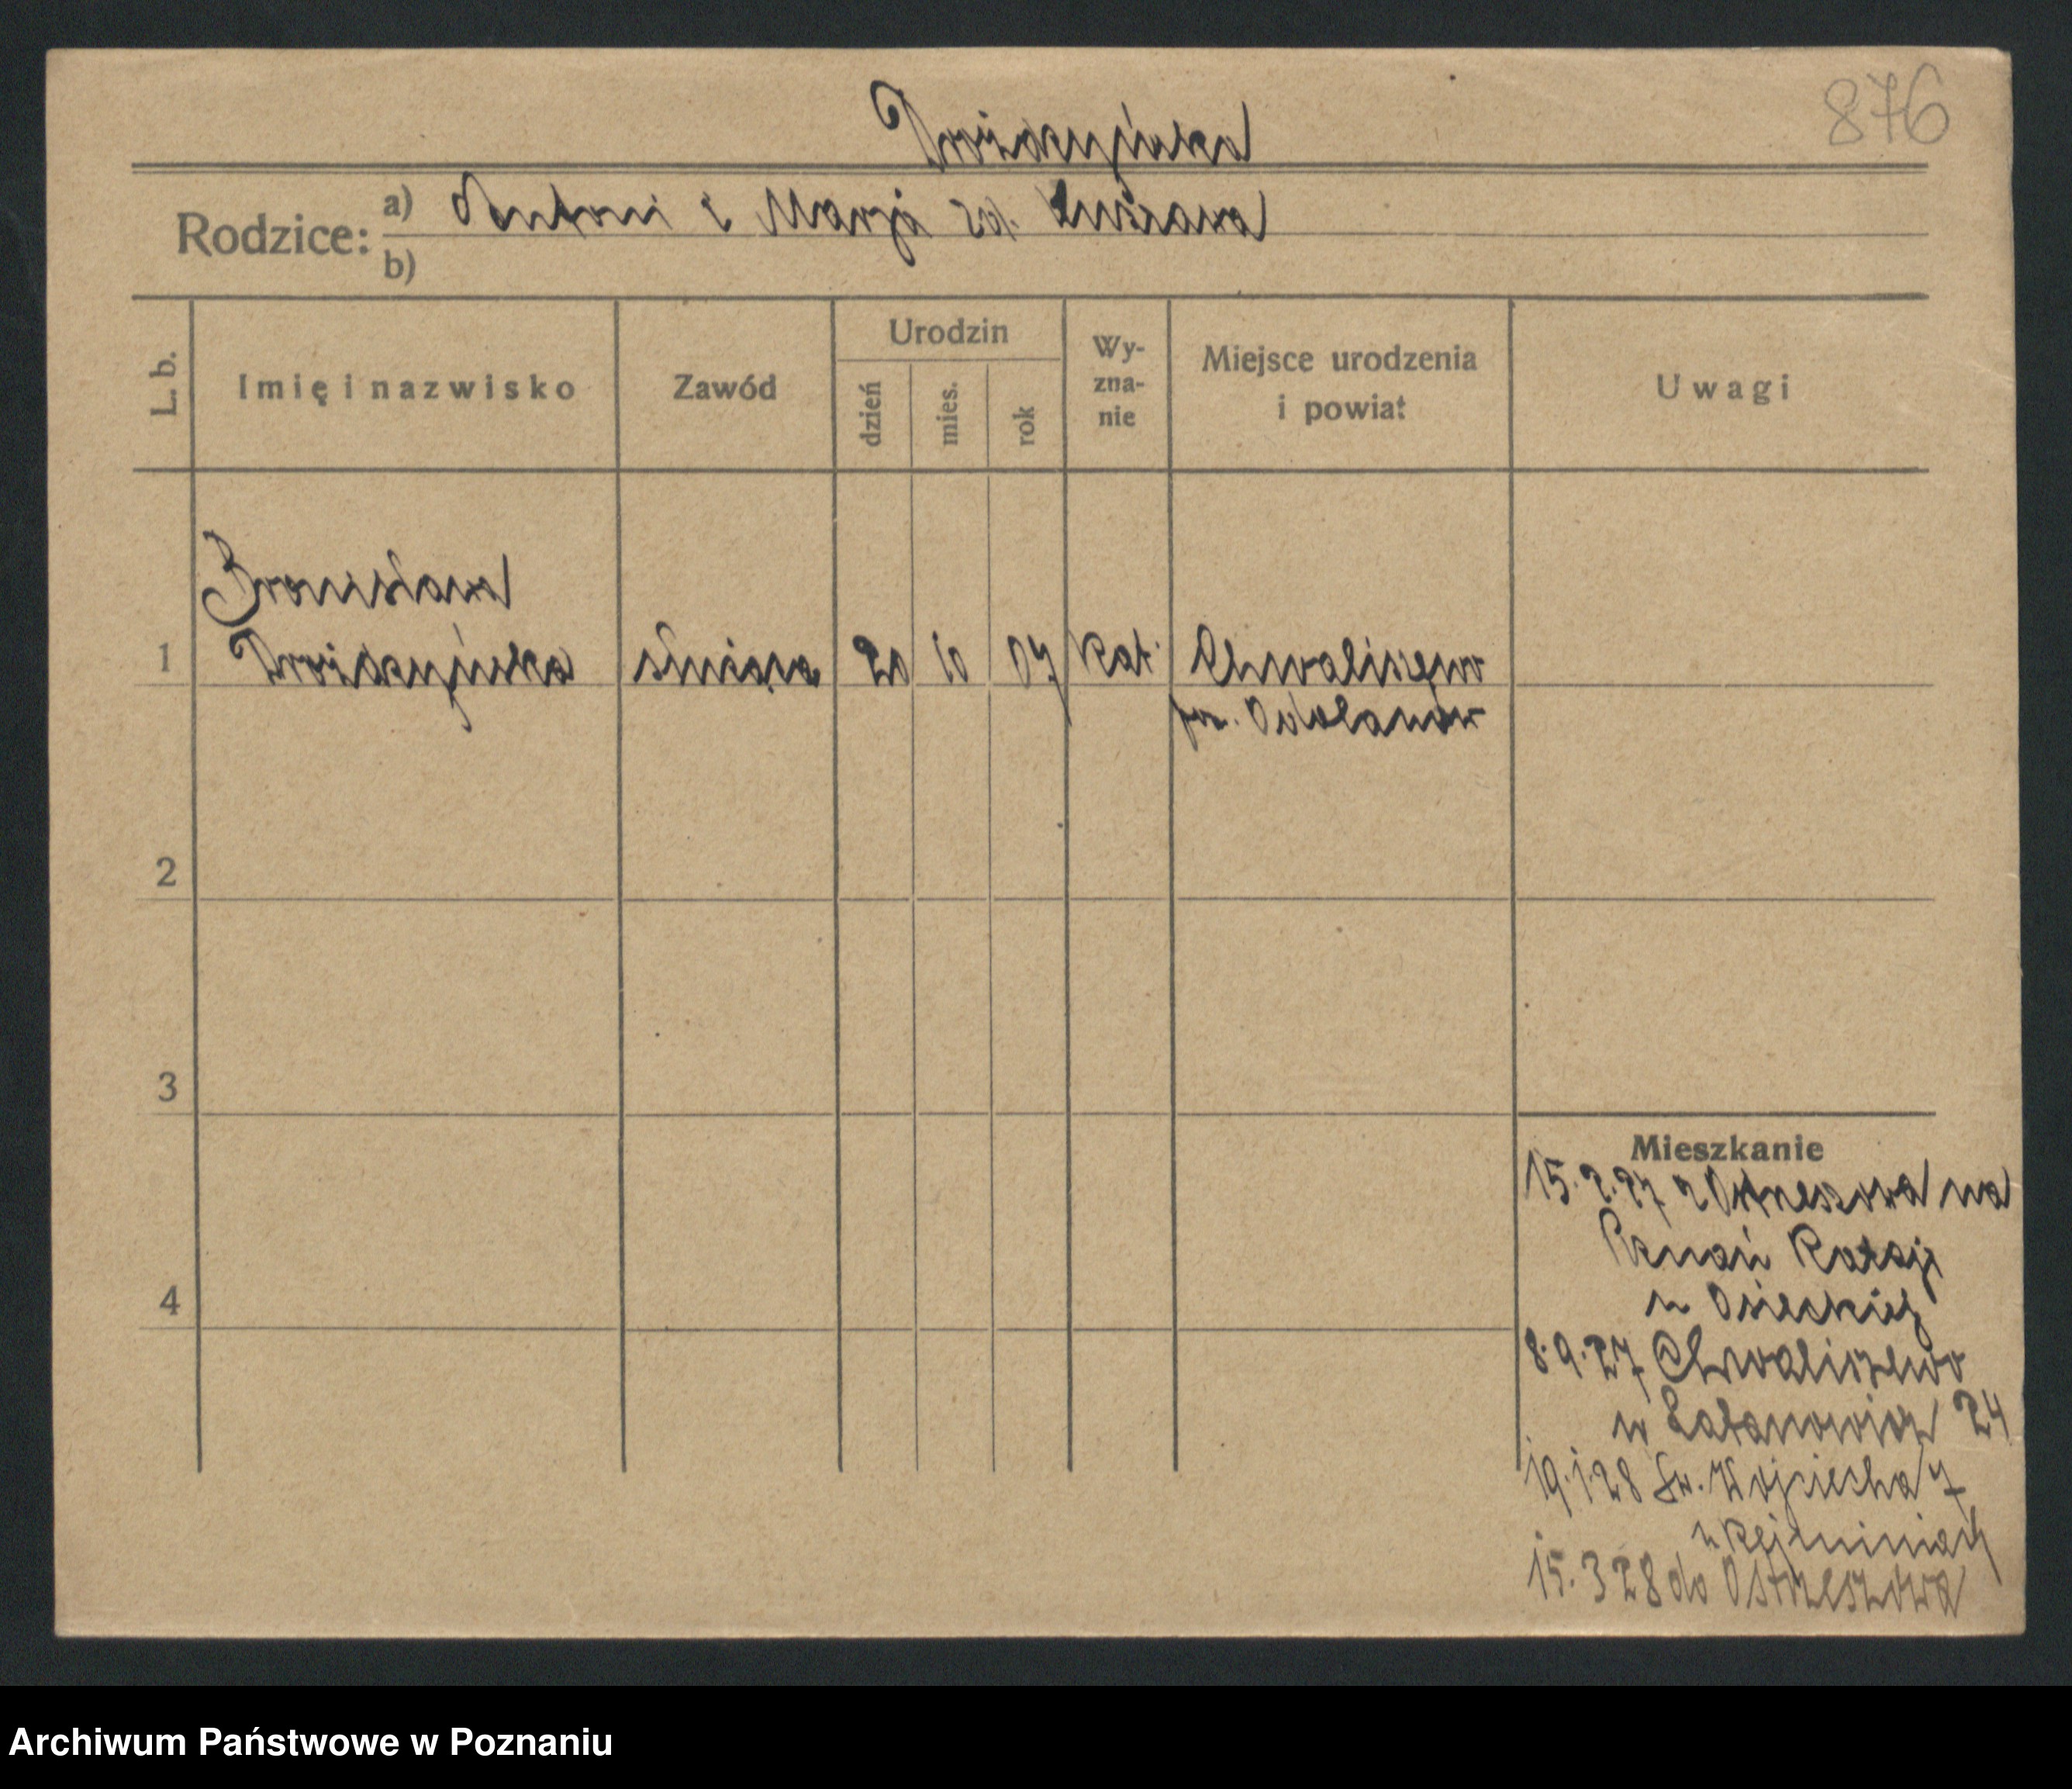 876
Drożdżyńska
Rodzice: a) Antoni i Marja zd.
b)
L. b.
Imię i nazwisko
Zawód
Urodzin
dzień
mies.
rok
Wy-
zna-
nie
Miejsce urodzenia
i powiat
Uwagi
Bronisława
1 Drożdżyńska służąca 20 10 07 kat. Chwaliszewo
pow. Odolanów
2
3
4
Mieszkanie
15.2.27 z Ostrzeszowa na
Poznań Rataje
u Osieckiej
8.9.27 Chwaliszewo
24
19.1.28 Św. Wojciecha 7
15.3 28 do Ostrzeszowa
Archiwum Państwowe w Poznaniu